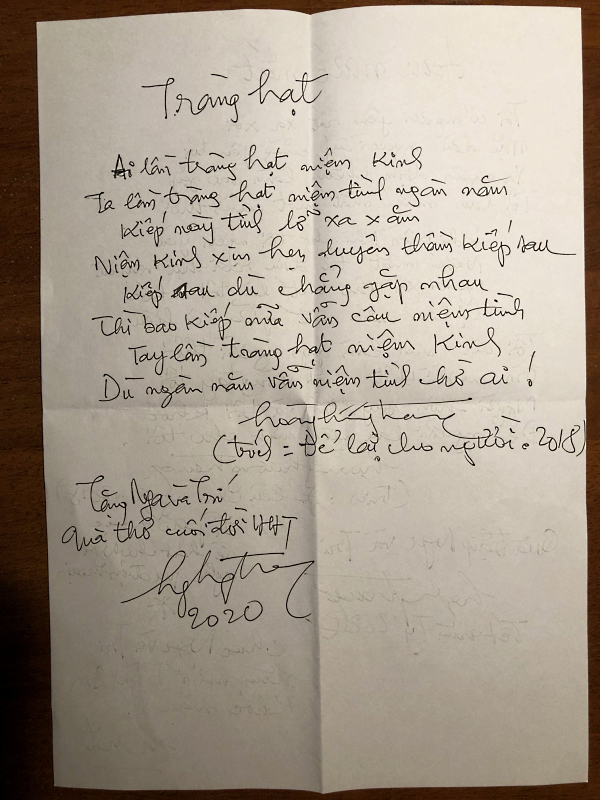 Tràng hạt
Ai lần tràng hạt niệm Kinh
Ta lần tràng hạt niệm tình ngàn năm
Kiếp này tình lỡ xa xăm
Niệm Kinh xin hẹn duyên thầm Kiếp sau
Kiếp sau dù chẳng gặp nhau
Thì bao Kiếp nữa vẫn câu niệm tình
Tay lần tràng hạt niệm Kinh
Dù ngàn năm vẫn niệm tình chờ ai!
(trích = Để lại cho người. 2018)
Tặng Nga và Trí
quà thơ cuối đời HHT
2020